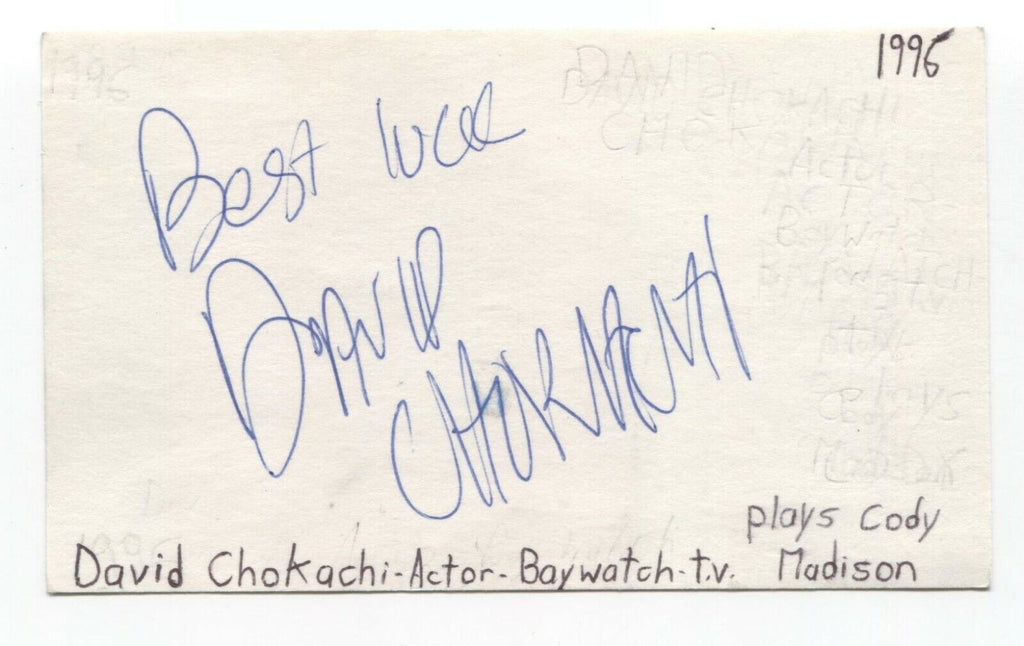 1996
Best luck
DAVID
CHOKACHI
plays Cody
David Chokachi-Actor-Baywatch-t.v. Madison